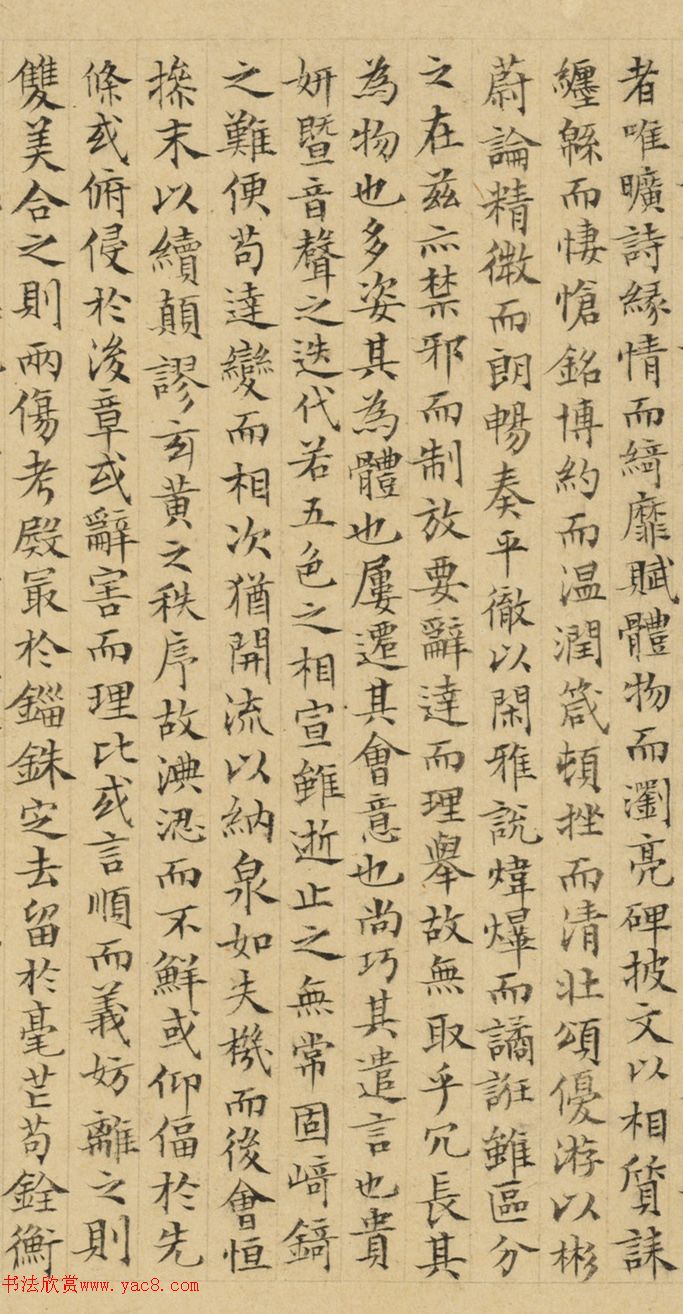 者唯曠詩緣情而綺靡賦體物而瀏亮碑披文以相質誄
纏緜而悽愴銘博約而温潤箴頓挫而清壯頌優游以彬
蔚論精微而朗暢奏平徹以閑雅說煒爗而譎誑雖區分
之在茲亦禁邪而制放要辭達而理舉故無取乎冗長其
為物也多姿其為體也屢遷其會意也尚巧其遣言也貴
妍暨音聲之迭代若五色之相宣雖逝止之無常固崎錡
之難便苟達變而相次猶開流以納泉如失機而後會恒
操末以續顛謬玄黃之秩序故淟涊而不鮮或仰偪於先
條或俯侵於後章或辭害而理比或言順而義妨離之則
雙美合之則兩傷考殿最於錙銖定去留於毫芒苟銓衡
书法欣赏www.yac8.com